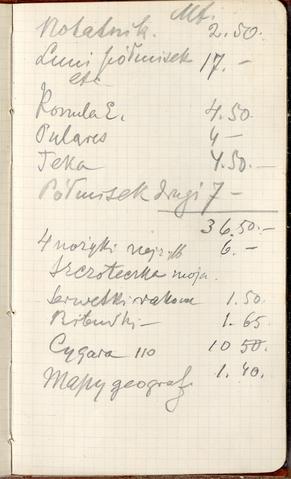 Mk.
Notatnik. 2.50.
Lunii półmisek 17.–
etc
Romula E. 4.50
Pulares 4 –
Teka 4.50.–
Półmisek drugi 7 –
36.50.–
4 nożyki 6.–
Szczoteczka moja
serwetki 1.50.
1.65.
Cygara 110 10 50.
Mapy geograf. 1.40.